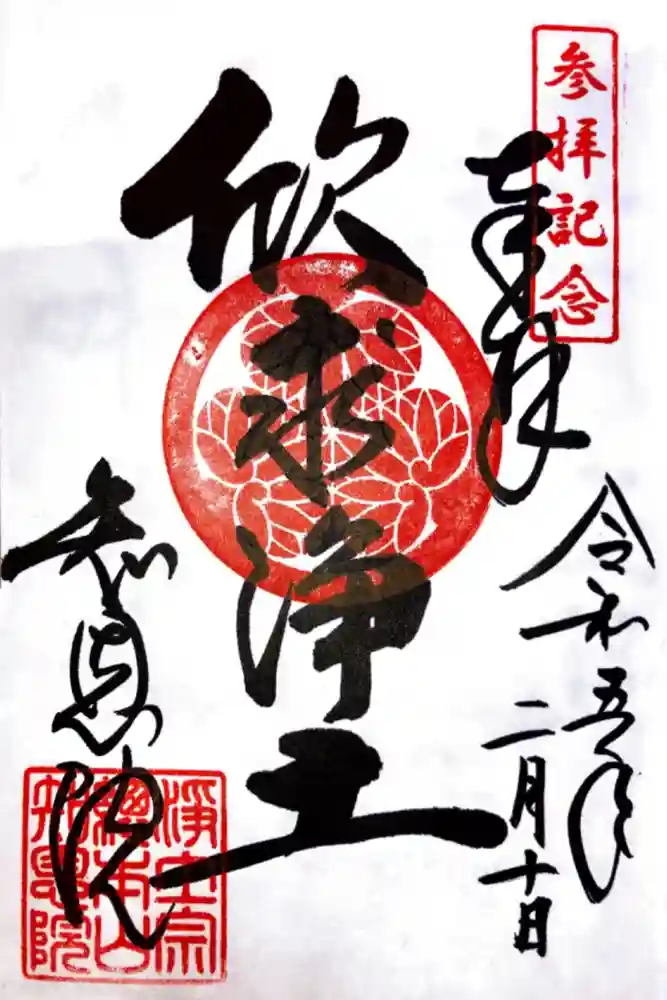 参拝記念
奉拝
令和五年
二月十日
欣求浄土
知恩院
浄土宗
総本山
知恩院